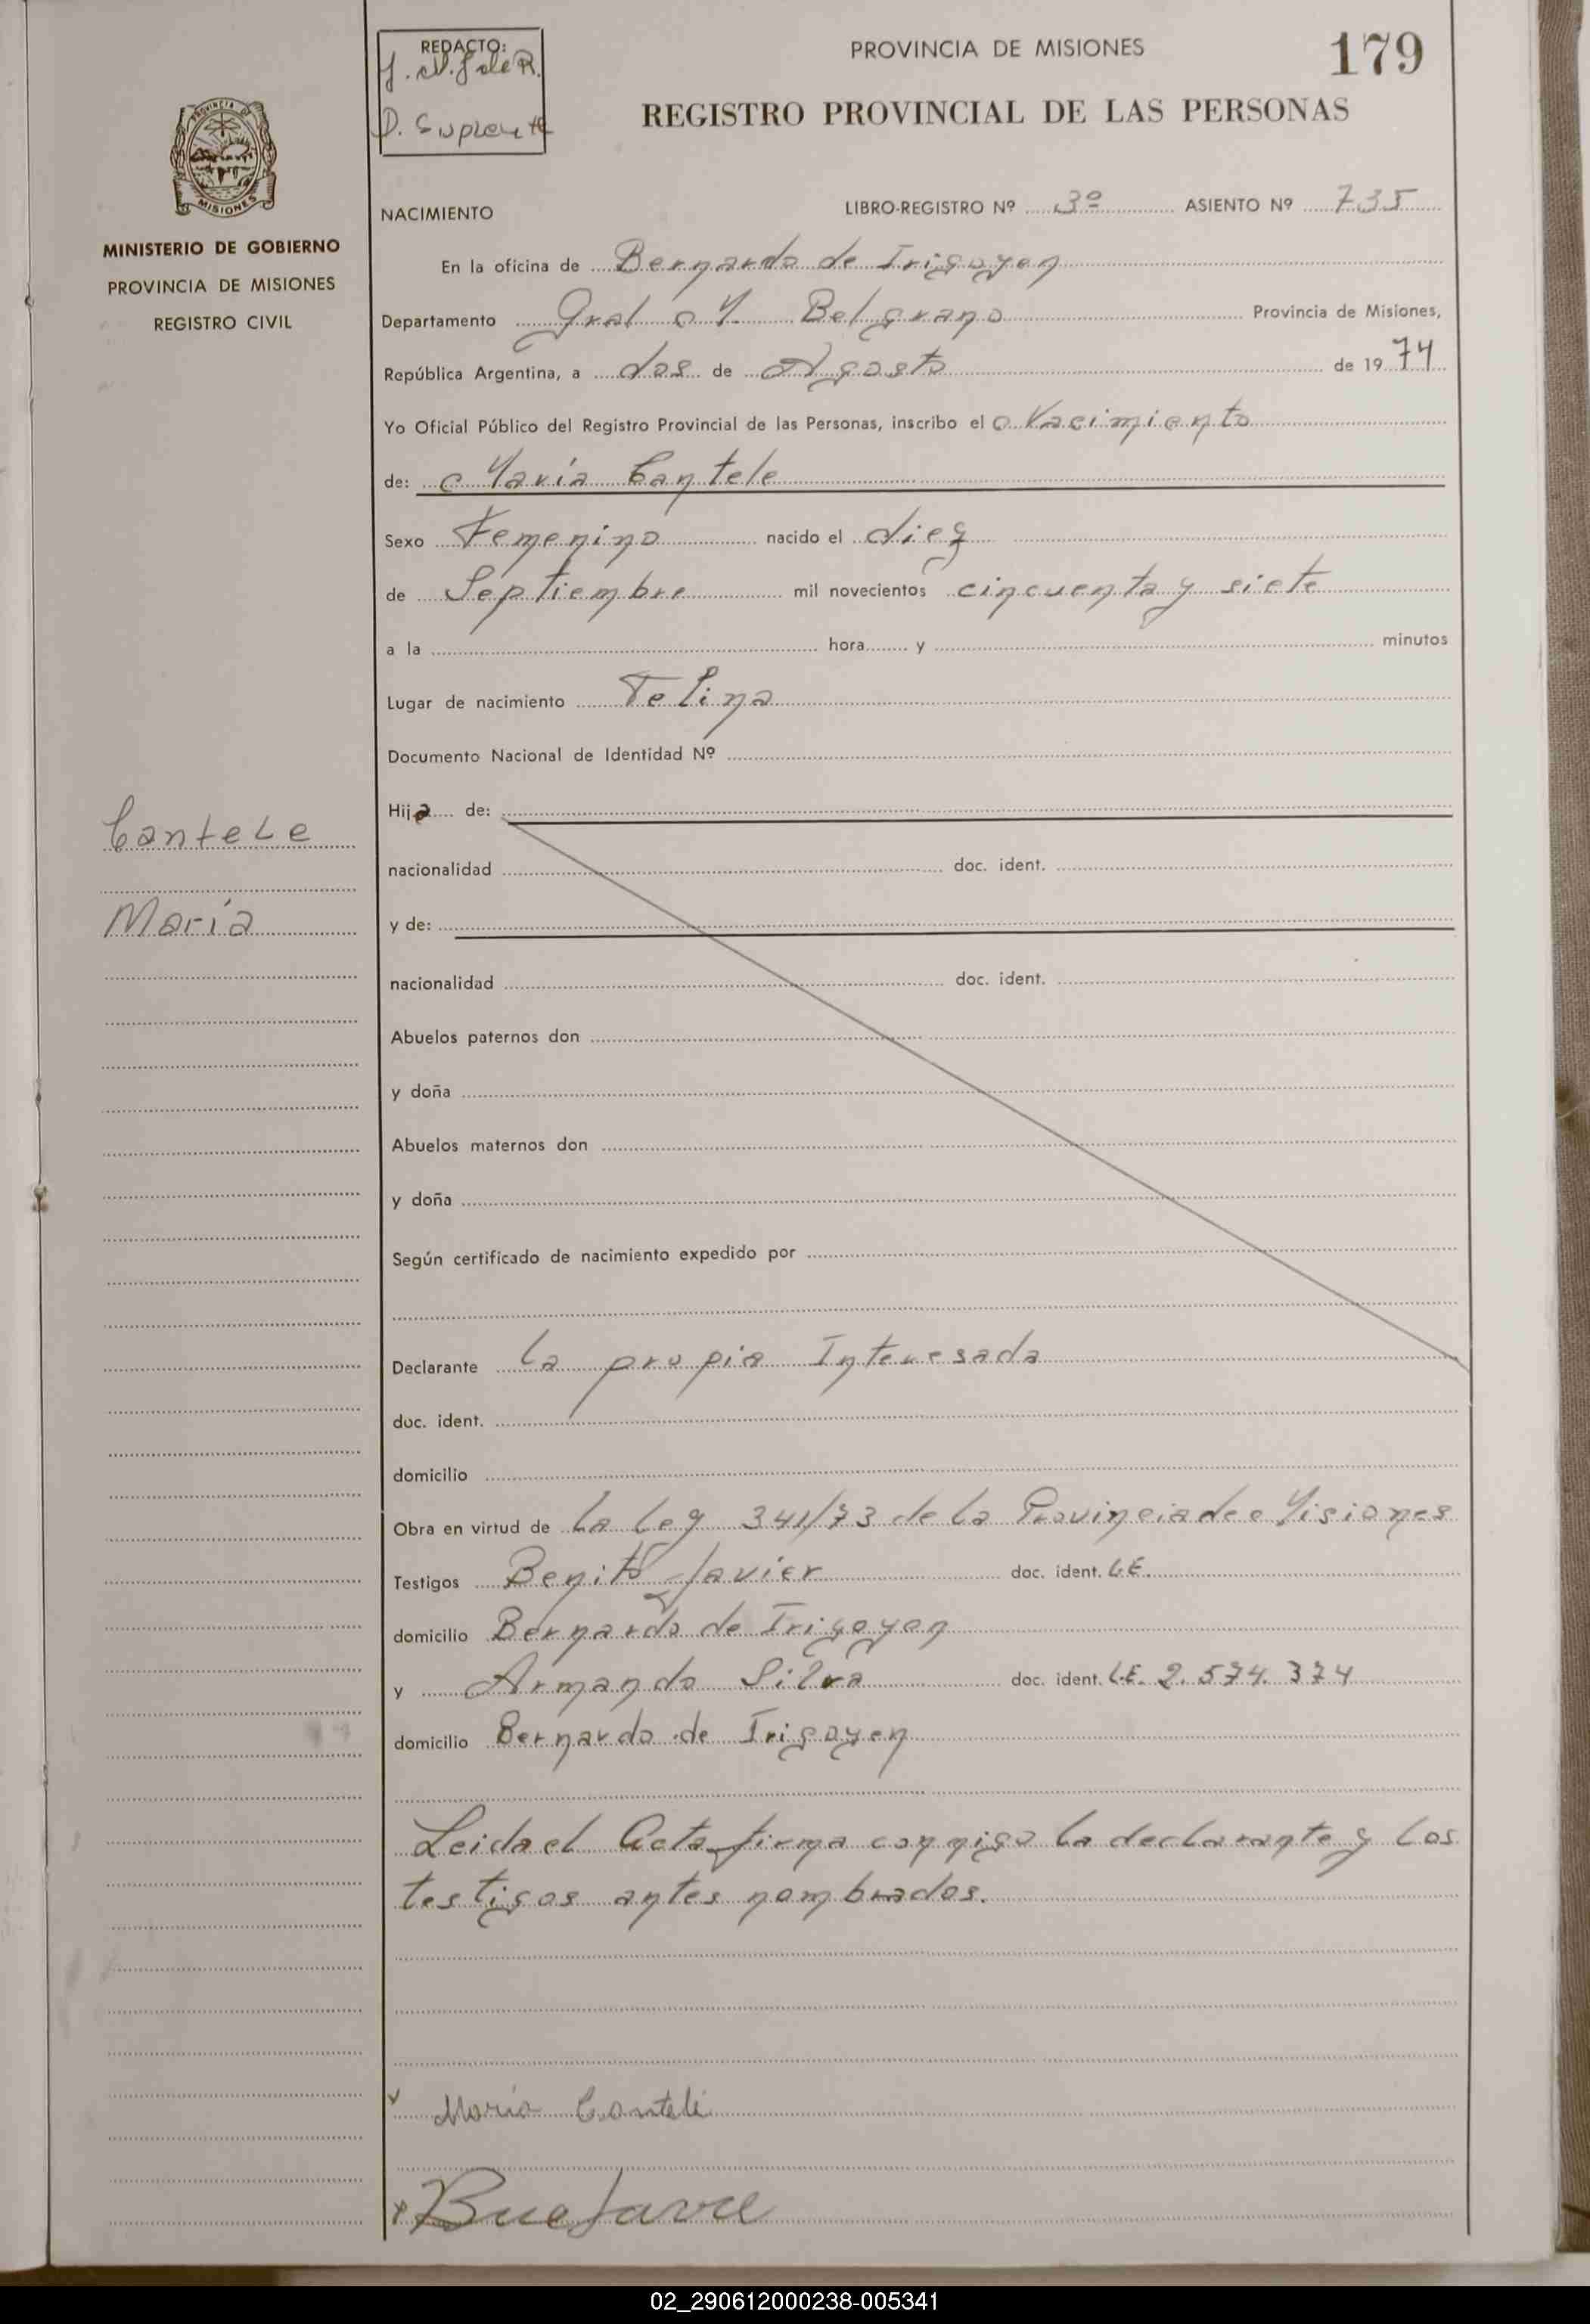 REDACTO:
D. Suplente
PROVINCIA DE MISIONES
179
REGISTRO PROVINCIAL DE LAS PERSONAS
MISIONES
MINISTERIO DE GOBIERNO
PROVINCIA DE MISIONES
REGISTRO CIVIL
NACIMIENTO LIBRO-REGISTRO Nº 3º ASIENTO Nº 735
En la oficina de Bernardo de Irigoyen
Departamento Gral M. Belgrano Provincia de Misiones,
República Argentina, a dos de Agosto de 1974
Yo Oficial Público del Registro Provincial de las Personas, inscribo el Nacimiento
de: María Cantele
Sexo Femenino nacido el diez
de Septiembre mil novecientos cincuenta y siete
a la hora y minutos
Lugar de nacimiento
Documento Nacional de Identidad Nº
Hija de:
Cantele
nacionalidad doc. ident.
María
y de:
nacionalidad doc. ident.
Abuelos paternos don
y doña
Abuelos maternos don
y doña
Según certificado de nacimiento expedido por
Declarante La propia Interesada
doc. ident.
domicilio
Obra en virtud de La Ley 341/73 de la Provincia de Misiones
Testigos Benito Javier doc. ident. L.E.
domicilio Bernardo de Irigoyen
y Armando Silva doc. ident. L.E. 2.574.374
domicilio Bernardo de Irigoyen
Leida el Acta firma conmigo la declarante y los
testigos antes nombrados.
María Canteli
02_290612000238-005341